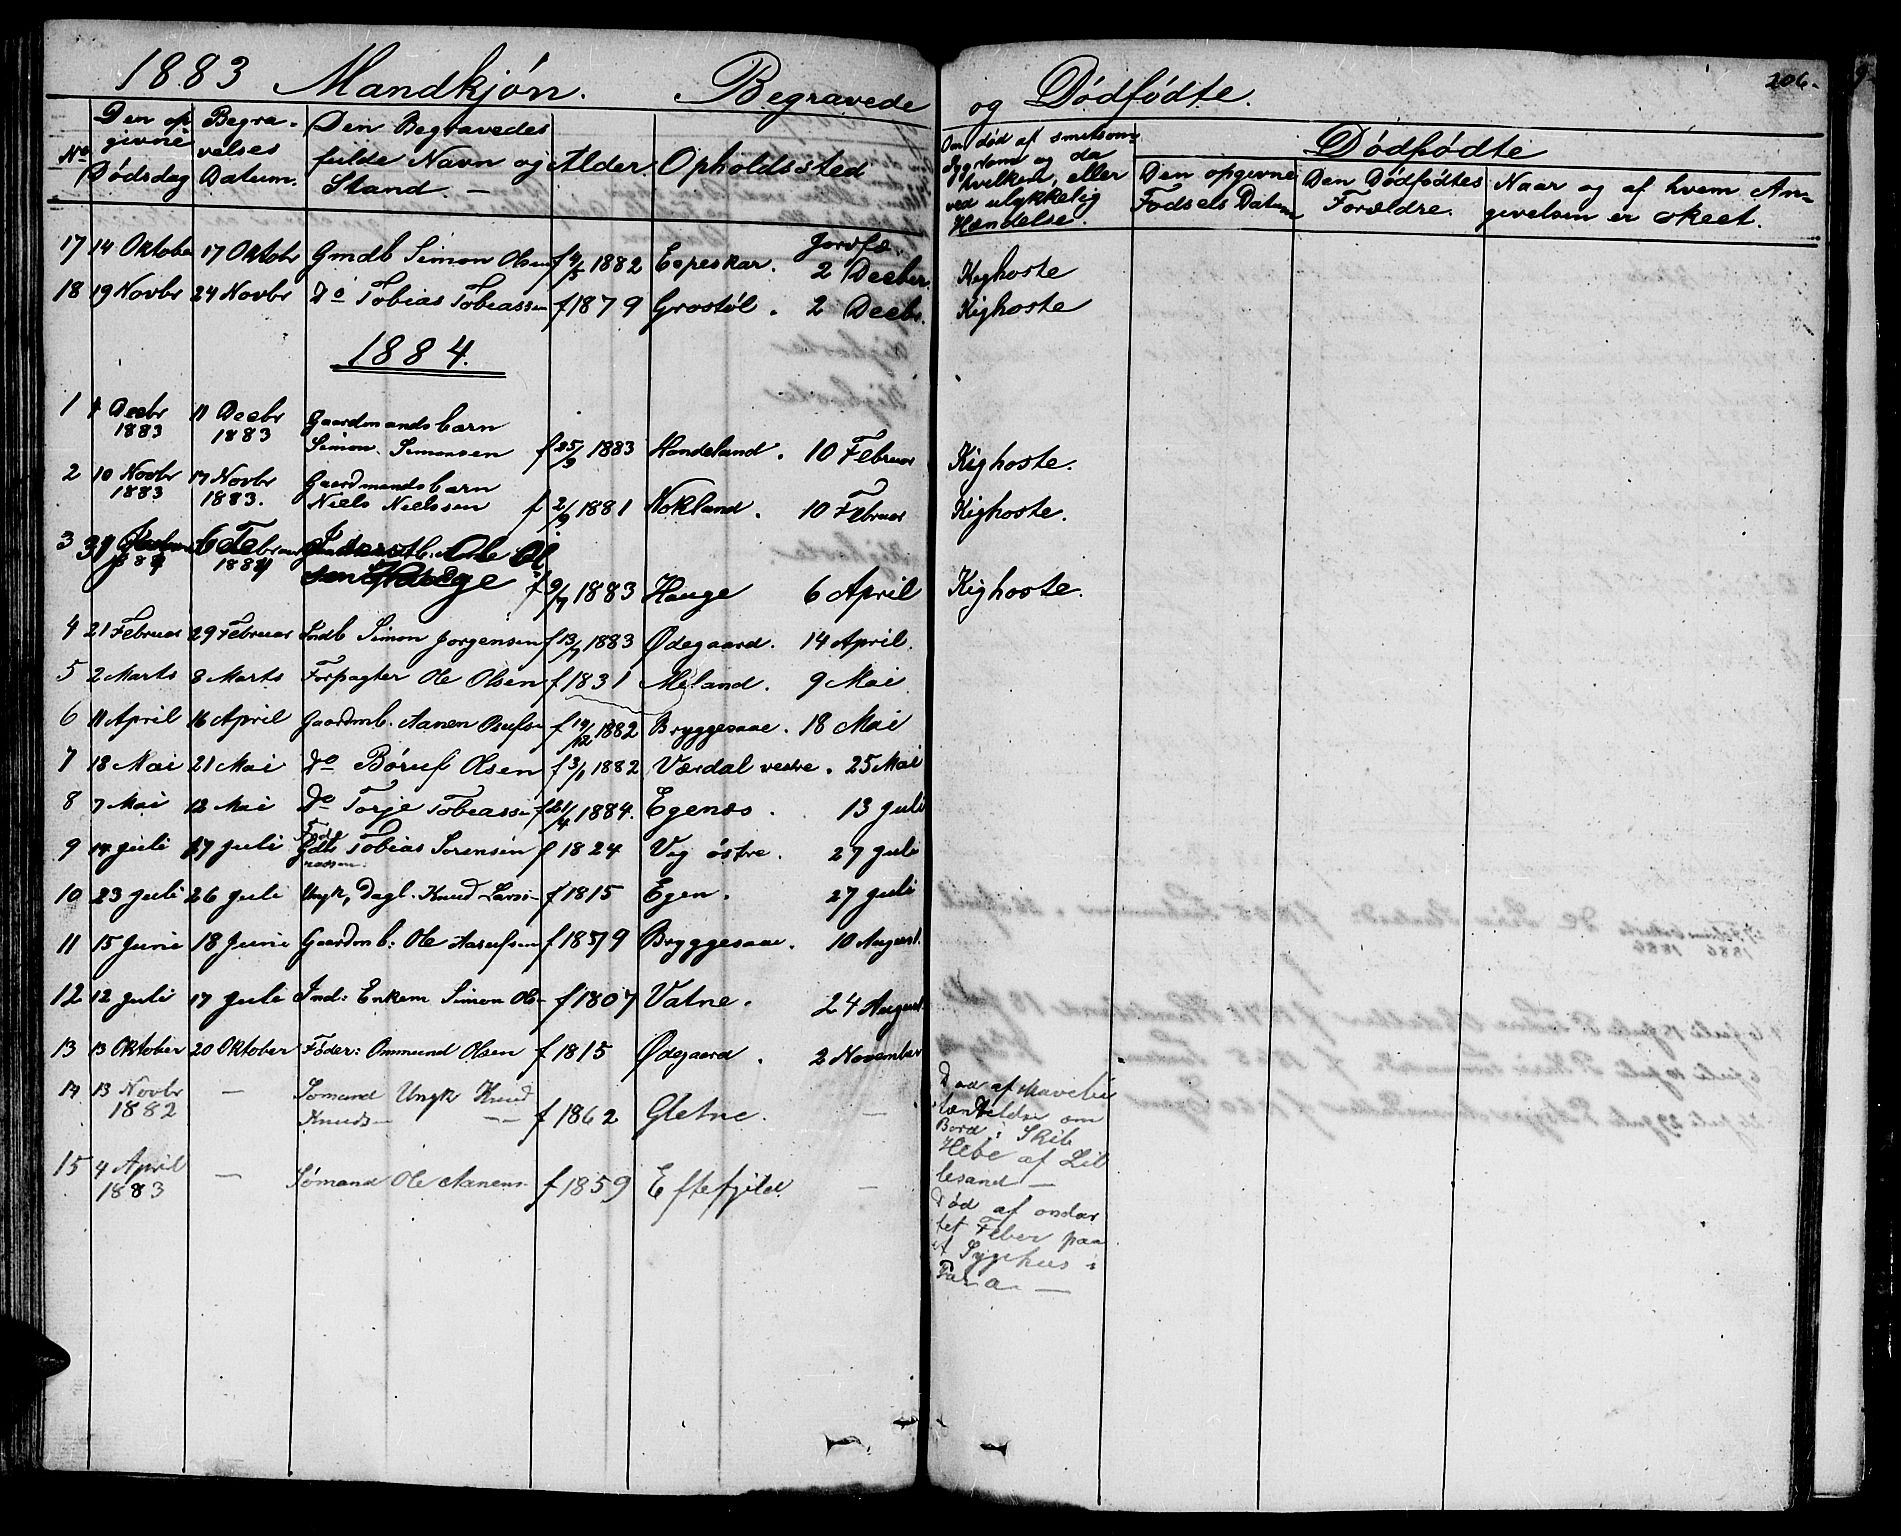 1883 Mandkjøn. Begravede og Dødfødte. 206.
No
Den opgivne Dødsdag
Begravelses Datum.
Den Begravedes fulde Navn og Stand. —
Alder
Opholdssted
Om død af smitsom Sygdom og da hvilken, eller ved ulykkelig Hændelse.
Dødfødte
Den opgivne Fødsels Datum
Den Dødfødtes Forældre.
Naar og af hvem Angivelsen er skeet.
Jordfæ.
17 14 Oktober 17 Oktobr Gmdb Simon Olsen f 9/5 1882 Eepeskar. 2 Decbr. Kighoste
18 19 Novbr 24 Novbr Do Tobias Tobiassen f 1879 Grostøl. 2 Decbr. Kighoste
1884.
1 4 Decbr 1883 11 Decbr 1883 Gaardmandsbarn Simon Simonsen f 25/9 1883 Handeland. 10 Februar Kighoste.
2 10 Novbr 1883 17 Novbr 1883. Gaardmandsbarn Niels Nielssen f 2/9 1881 Nokland. 10 Februar Kighoste.
3 31 1884 6 Februar 1884 Ole Olsen Hauge f 9/7 1883 Hauge 6 April Kighoste.
4 21 Februar 29 Februar Indb Simon Jørgensen f 13/7 1883 Ødegaard. 14 April.
5 2 Marts 8 Marts Forpagter Ole Olsen f 1831 Meland. 9 Mai
6 11 April 16 April Gaardmb. Aanen f 19/12 1882 Bryggesaae. 18 Mai
7 18 Mai 21 Mai Do Børuf Olsen f 3/1 1882 Værdal vestre. 25 Mai
8 7 Mai 12 Mai Do Torje Tobiass f 21/4 1884. Egenæs. 13 Juli
9 14 Juli 17 Juli Tobias Sørensen f 1824 Veg østre. 27 Juli
10 23 Juli 26 Juli Ungk, Dagl. Knud Lars f 1815 Egen. 27 Juli
11 15 Juni 18 Juni Gaardmb: Ole Aasufsen f 1879 Bryggesaae. 10 August.
12 12 Juli 17 Juli Ind: Enkem Simon Ols f 1807 Vatne. 24 August
13 13 Oktober 20 Oktober Føder: Ommund Olsen f 1815 Ødegaard. 2 November
14 13 Novbr 1882 — Sømand Ungk Knud Knuds — f 1862 Gletne. — Død af Mavebetændelse om Bord i Skib Hebe af Lillesand —
15 4 April 1883 — Sømand Ole Aanens f 1859 Eftefjeld. — Død af ondartet Feber paa et Sygehus i Para —